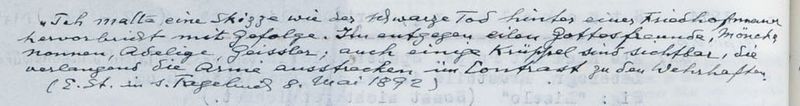 „Ich malte eine Skizze wie der schwarze Tod hinter einer Friedhofmauer
hervorbricht mit Gefolge. Ihm entgegen eilen Gottesfreunde, Mönche,
nonnen, Adelige, Geissler; auch einige Krüppel sind sichtbar, die
verlangend die Arme ausstrecken im Contrast zu den Wehrhaften.
(E. St. in s. Tagebuch 8. Mai 1892)